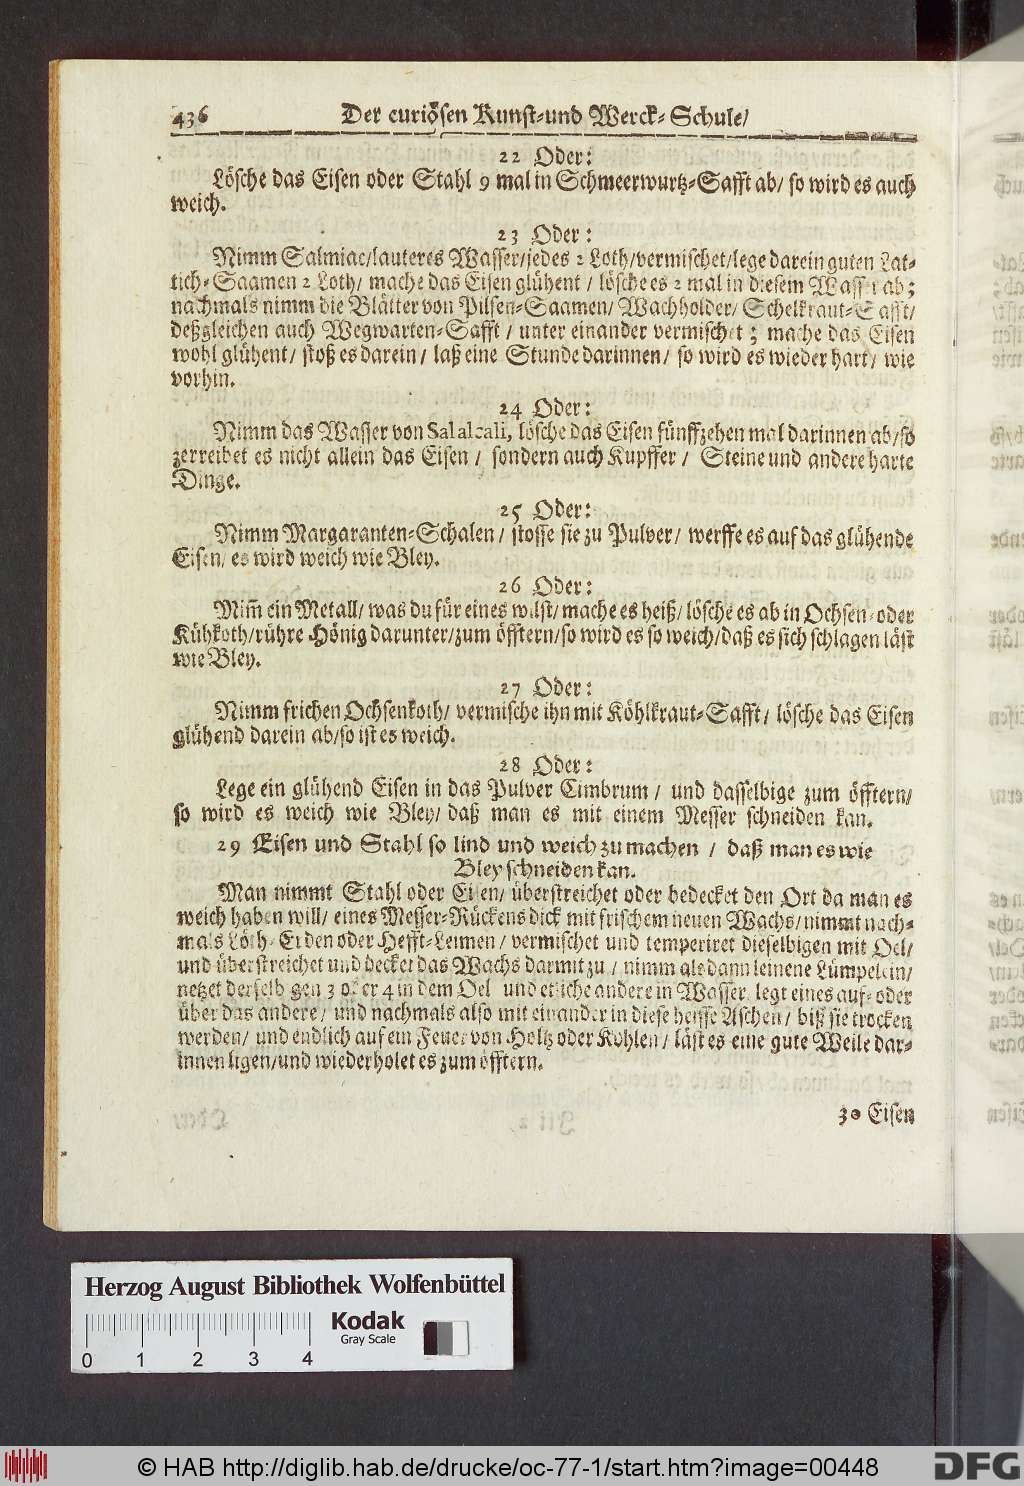 436 Der curiösen Kunst-und Werck-Schule/
22 Oder:
Lösche das Eisen oder Stahl 9 mal in Schmeerwurtz-Safft ab/ so wird es auch
weich.
23 Oder:
Nimm Salmiac/lauteres Wasser/jedes 2 Loth/vermischet/lege darein guten Lat-
tich-Saamen 2 Loth/ mache das Eisen glühent / lösche es 2 mal in diesem Wasser ab;
nachmals nimm die Blätter von Pilsen-Saamen/ Wachholder/ Schelkraut-Safft/
deßgleichen auch Wegwarten-Safft / unter einander vermischet; mache das Eisen
wohl glühent/ stoß es darein / laß eine Stunde darinnen/ so wird es wieder hart/ wie
vorhin.
24 Oder:
Nimm das Wasser von Salalcali, lösche das Eisen fünffzehen mal darinnen ab/so
zerreibet es nicht allein das Eisen / sondern auch Kupffer / Steine und andere harte
Dinge.
25 Oder:
Nimm Margaranten-Schalen / stosse sie zu Pulver/ werffe es auf das glühende
Eisen/ es wird weich wie Bley.
26 Oder:
Nim̃ ein Metall/ was du für eines wilst/ mache es heiß/ lösche es ab in Ochsen- oder
Kühkoth/rühre Hönig darunter/zum öfftern/so wird es so weich/daß es sich schlagen läst
wie Bley.
27 Oder:
Nimm frichen Ochsenkoth/ vermische ihn mit Köhlkraut-Safft/ lösche das Eisen
glühend darein ab/so ist es weich.
28 Oder:
Lege ein glühend Eisen in das Pulver Cimbrum / und dasselbige zum öfftern/
so wird es weich wie Bley/ daß man es mit einem Messer schneiden kan.
29 Eisen und Stahl so lind und weich zu machen / daß man es wie
Bley schneiden kan.
Man nimmt Stahl oder Eisen/ überstreichet oder bedecket den Ort da man es
weich haben will/ eines Messer-Rückens dick mit frischem neuen Wachs/ nimmt nach-
mals Löth-Erden oder Hefft-Leimen / vermischet und temperiret dieselbigen mit Oel/
und überstreichet und decket das Wachs darmit zu / nimm als dann leinene Lümpelein/
netzet derselbigen 3 oder 4 in dem Oel und etliche andere in Wasser/ legt eines auf- oder
über das andere/ und nachmals also mit einander in diese heisse Aschen/ biß sie trocken
werden/ und endlich auf ein Feuer von Holtz oder Kohlen/ läst es eine gute Weile dar-
innen ligen/und wiederholet es zum öfftern.
30 Eisen
Herzog August Bibliothek Wolfenbüttel
Kodak
Gray Scale
0 1 2 3 4
© HAB http://diglib.hab.de/drucke/oc-77-1/start.htm?image=00448
DFG